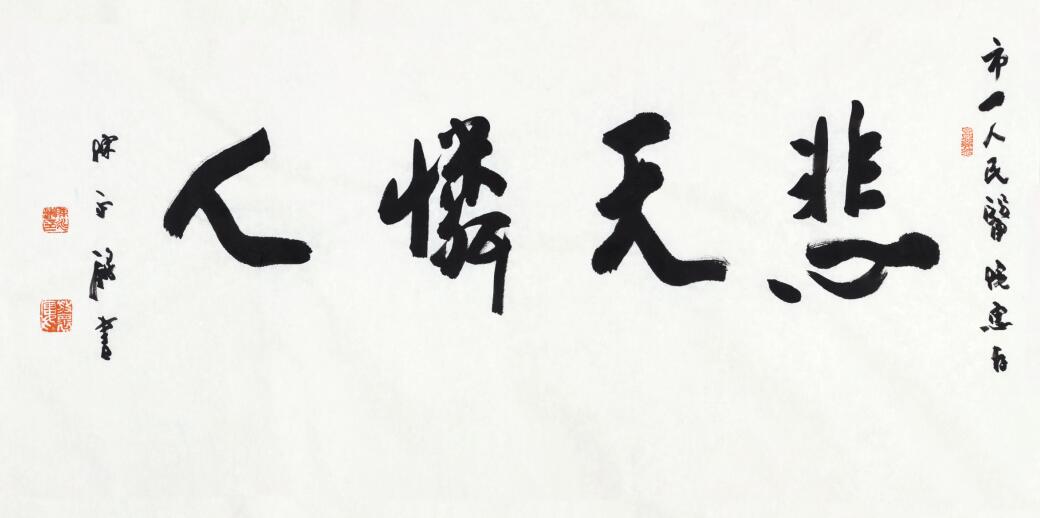 市一人民醫院惠存
悲天憐人
書